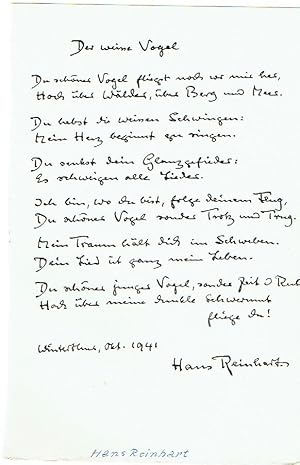 Der weisse Vogel
Du schöner Vogel fliegst noch vor mir her,
Hoch über Wälder, über Berg und Meer.
Du hebst die weissen Schwingen:
Mein Herz beginnt zu singen.
Du senkst dein Glanzgefieder:
Es schweigen alle Lieder.
Ich bin, wo du bist, folge deinem Flug,
Du schöner Vogel sonder Trotz und Trug.
Mein Traum hält dich im Schweben.
Dein Lied ist ganz mein Leben.
Du schöner junger Vogel, sonder Zeit
Hoch über meine dunkle Schwermut
fliege du!
Winterthur, Okt. 1941
Hans Reinhart
Hans Reinhart